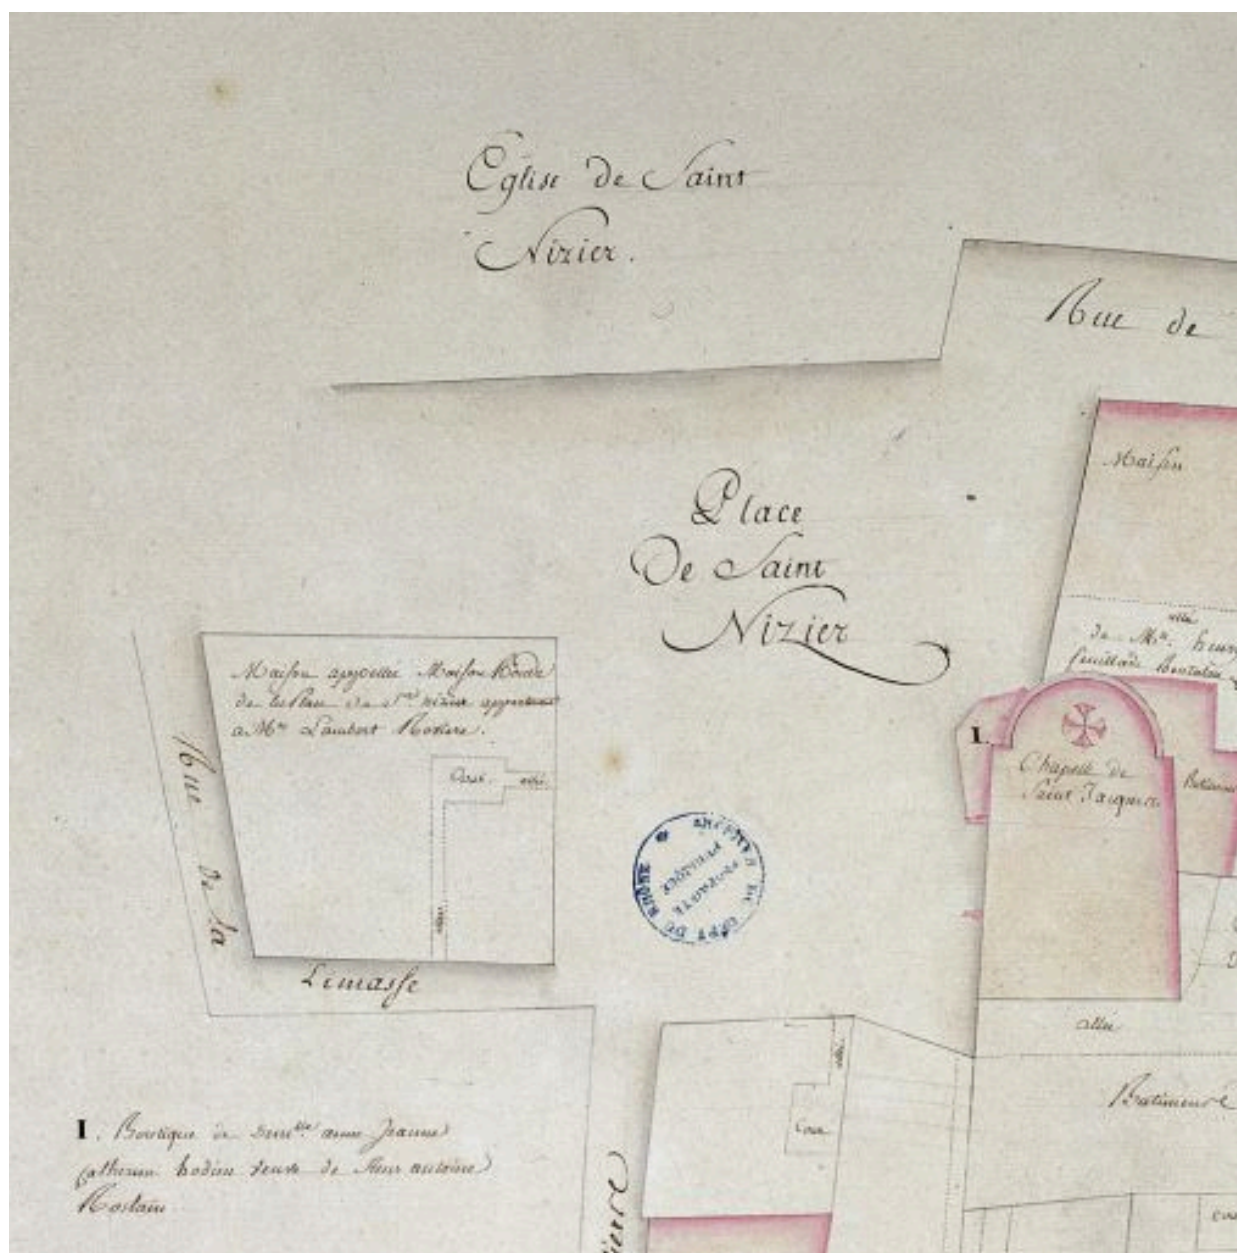 Eglise de Saint
Nizier.
Rue de
Maison
Place
De Saint
Nizier
allée
de Mr. henry
Maison appellée Maison Ronde
de la Place de St. nizier appartenant
a Mr Lambert Rosiere.
Cour. allée
Rue de la
Limasse
I.
Chapelle de
Saint Jacques
Batiment
ARCHIVES DU DEPT DU RHONE
allée
allée
Batiment
Cour
I. Boutique de anne Jeanne
Catherine hodieu veuve de Sieur antoine
Rostain